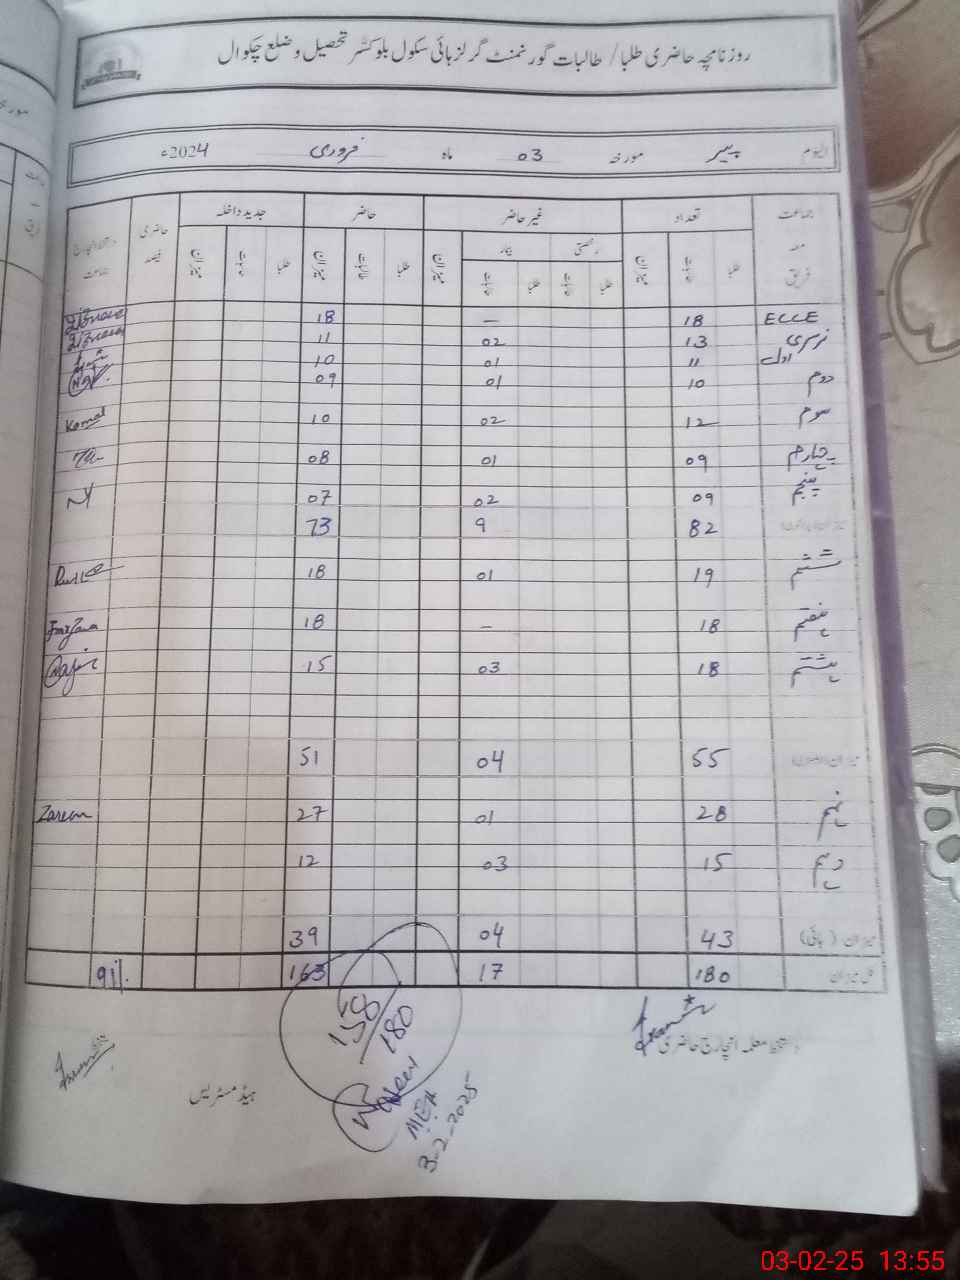 روزنامچہ حاضری طلبا / طالبات گورنمنٹ گرلز ہائی سکول بلوکسر تحصیل و ضلع چکوال
الیوم پیر مورخہ 03 ماہ فروری 2024ء
جماعت معہ فریق تعداد غیر حاضر حاضر جدید داخلہ حاضری فیصد
رخصتی بیمار
طلبا میزان طلبا طلبا میزان طلبا طالبات میزان طلبا میزان
ECCE 18 – 18
نرسری 13 02 11
اول 11 01 10
دوم 10 01 09
سوم 12 02 10 Komal
چہارم 09 01 08
پنجم 09 02 07
82 9 73
ششم 19 01 18
ہفتم 18 – 18
ہشتم 18 03 15
55 04 51
نہم 28 01 27 Zareen
دہم 15 03 12
میزان (ہائی) 43 04 39
کل میزان 180 17 163 91%
دستخط معلمہ انچارج حاضری
ہیڈ مسٹریس
158/180
MEA
3-2-2025
03-02-25 13:55